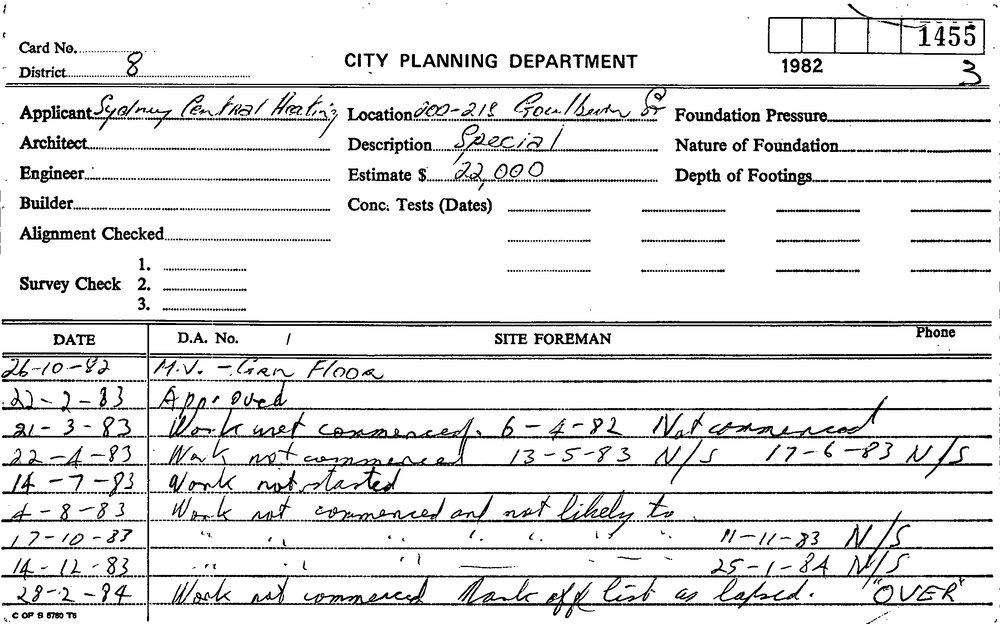 1455
Card No.
District 8
CITY PLANNING DEPARTMENT
1982
3
Applicant Sydney Central Heating Location 200-218 Goulburn St Foundation Pressure
Architect Description Special Nature of Foundation
Engineer Estimate $ 22,000 Depth of Footings
Builder Conc. Tests (Dates)
Alignment Checked
1.
Survey Check 2.
3.
DATE D.A. No. / SITE FOREMAN Phone
26-10-82 M.V. - Floor
22-2-83 Approved
21-3-83 Work not commenced. 6-4-82 Not commenced
22-4-83 Work not commenced 13-5-83 N/S 17-6-83 N/S
14-7-83 Work not started
4-8-83 Work not commenced and not likely to
17-10-83 " " " " " " 11-11-83 N/S
14-12-83 " " " — — 25-1-84 N/S
28-2-84 Work not commenced Mark off list as lapsed. "OVER"
C OF S 5750 T6